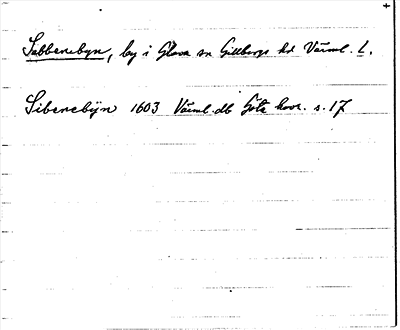 Sabbenebyn, by i Glava sn Gillbergs hd Värml. L.
Sibenebÿn 1603 Värml. db Göta hovr. s. 17